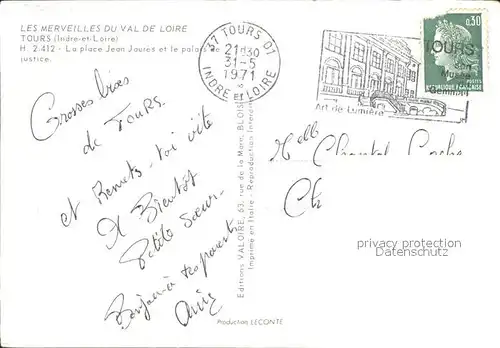 LES MERVEILLES DU VAL DE LOIRE
TOURS (Indre-et-Loire)
H. 2.412 - La place Jean Jaurès et le palais de
justice.
37 TOURS 01
21H30
31-5
1971
INDRE ET LOIRE
TOURS
Musée
Gemmail
Art de Lumière
0,30
POSTES
REPUBLIQUE FRANÇAISE
Grosses bises
de Tours.
et Remets-toi vite
A Bientôt
Petite sœur.
Bonjour à tes parents
Editions VALOIRE, 63, rue de la Mare, BLOIS
Imprimé en Italie - Reproduction Interdite
Melle Chantal
Ch
privacy protection
Datenschutz
Production LECONTE